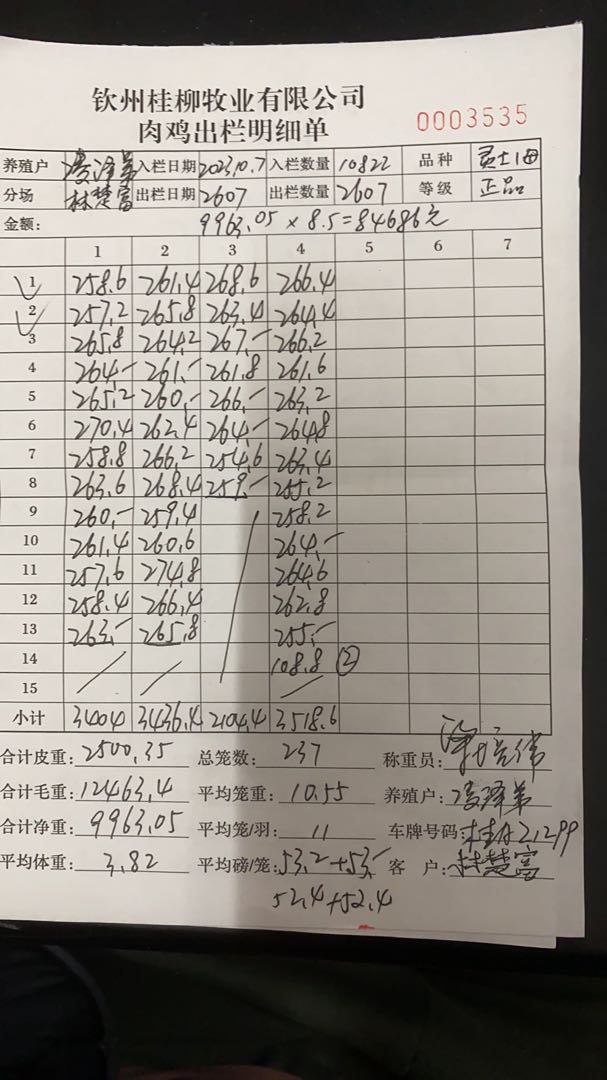 钦州桂柳牧业有限公司
肉鸡出栏明细单
0003535
养殖户 入栏日期 2023.10.7 入栏数量 10822 品种
分场 林楚富 出栏日期 2607 出栏数量 2607 等级 正品
金额: 9963.05 × 8.5 = 84686元
1 2 3 4 5 6 7
1 258.6 261.4 268.6 266.4
2 257.2 265.8 263.4 264.4
3 265.8 264.2 267.- 266.2
4 264.- 261.- 261.8 261.6
5 265.2 260.- 266.- 263.2
6 270.4 262.4 264.- 264.8
7 258.8 266.2 254.6 263.4
8 263.6 268.4 259.- 255.2
9 260.- 259.4 258.2
10 261.4 260.6 264.-
11 257.6 274.8 264.6
12 258.4 266.4 262.8
13 263.- 265.8 255.-
14 108.8 ②
15
小计 3404 3436.4 2104.4 3518.6
合计皮重: 2500.35 总笼数: 237 称重员:
合计毛重: 12463.4 平均笼重: 10.55 养殖户:
合计净重: 9963.05 平均笼/羽: 11 车牌号码: 21299
平均体重: 3.82 平均磅/笼: 53.2+53.- 客户: 林楚富
52.4+52.4